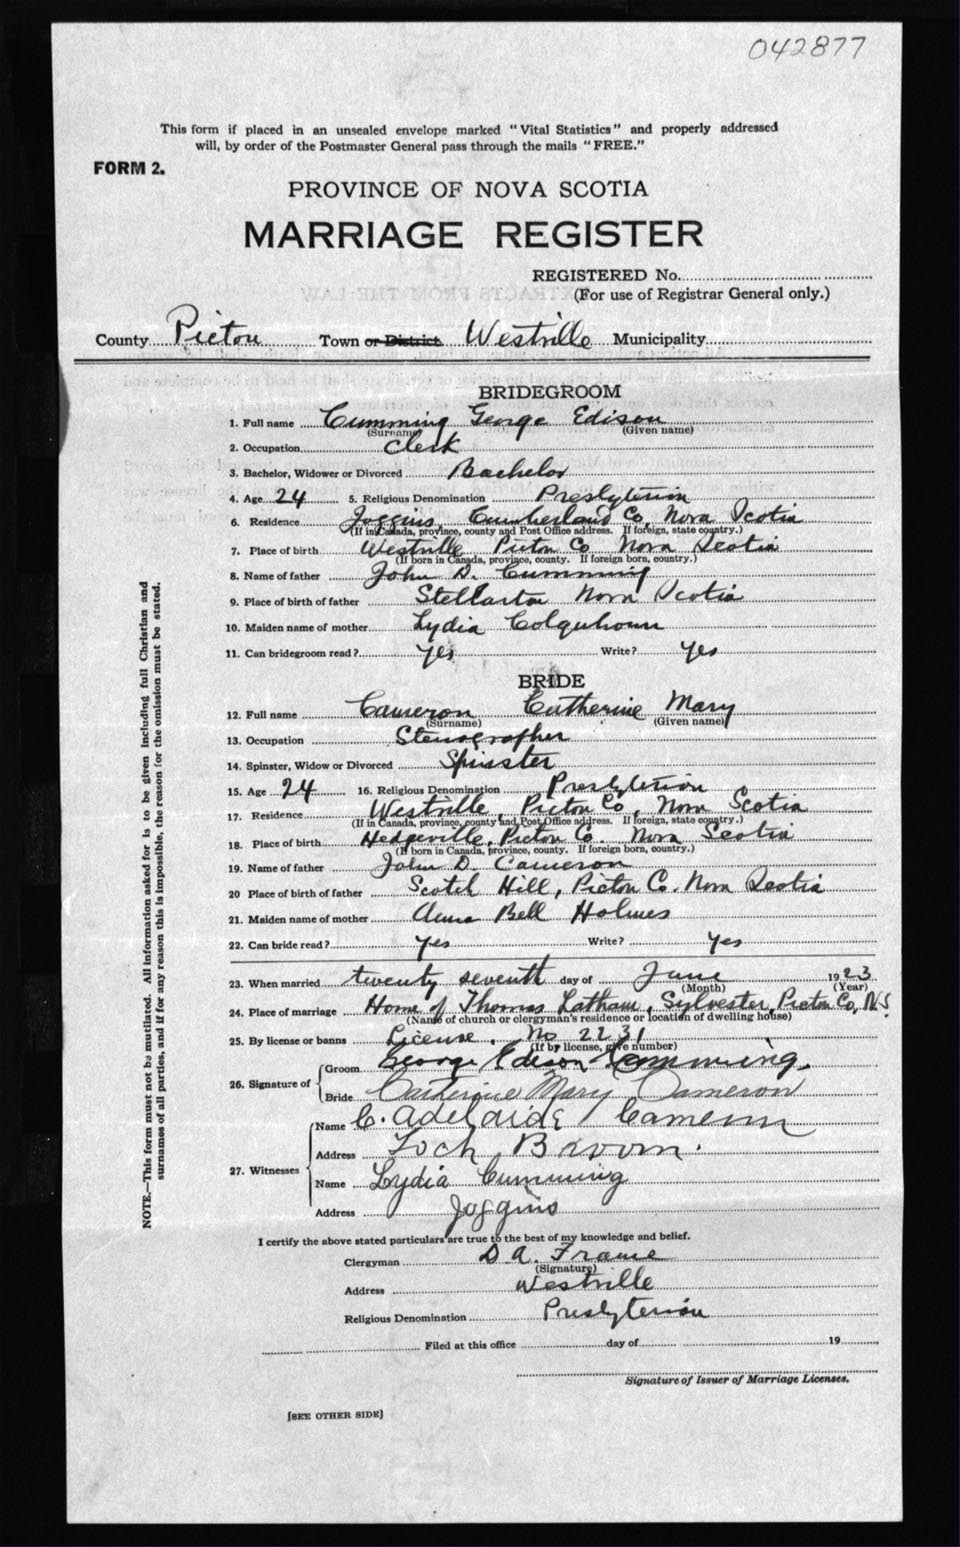 042877
This form if placed in an unsealed envelope marked "Vital Statistics" and properly addressed
will, by order of the Postmaster General pass through the mails "FREE."
FORM 2.
PROVINCE OF NOVA SCOTIA
MARRIAGE REGISTER
REGISTERED No.
(For use of Registrar General only.)
County Pictou Town or District Westville Municipality
BRIDEGROOM
1. Full name Cumming George Edison
(Surname) (Given name)
2. Occupation Clerk
3. Bachelor, Widower or Divorced Bachelor
4. Age 24 5. Religious Denomination Presbyterian
6. Residence Joggins, Cumberland Co, Nova Scotia
(If in Canada, province, county and Post Office address. If foreign, state country.)
7. Place of birth Westville Pictou Co Nova Scotia
(If born in Canada, province, county. If foreign born, country.)
8. Name of father John D. Cumming
9. Place of birth of father Stellarton Nova Scotia
10. Maiden name of mother Lydia Colquhoun
11. Can bridegroom read? Yes Write? Yes
BRIDE
12. Full name Cameron Catherine Mary
(Surname) (Given name)
13. Occupation Stenographer
14. Spinster, Widow or Divorced Spinster
15. Age 24 16. Religious Denomination Presbyterian
17. Residence Westville, Pictou Co, Nova Scotia
(If in Canada, province, county and Post Office address. If foreign, state country.)
18. Place of birth Hedgeville, Pictou Co. Nova Scotia
(If born in Canada, province, county. If foreign born, country.)
19. Name of father John D. Cameron
20 Place of birth of father Scotch Hill, Pictou Co. Nova Scotia
21. Maiden name of mother Anna Bell Holmes
22. Can bride read? Yes Write? Yes
23. When married twenty seventh day of June 1923
(Month) (Year)
24. Place of marriage Home of Thomas Latham, Sylvester, Pictou Co, N.S.
(Name of church or clergyman's residence or location of dwelling house)
25. By license or banns License. No 2231
(If by license, give number)
26. Signature of Groom George Edison Cumming.
Bride Catherine Mary Cameron
27. Witnesses Name C. Adelaide Cameron
Address Loch Broom.
Name Lydia Cumming
Address Joggins
I certify the above stated particulars are true to the best of my knowledge and belief.
Clergyman D A. Frame
(Signature)
Address Westville
Religious Denomination Presbyterian
Filed at this office day of 19
Signature of Issuer of Marriage Licenses.
[SEE OTHER SIDE]
NOTE.—This form must not be mutilated. All information asked for is to be given including full Christian and
surnames of all parties, and if for any reason this is impossible, the reason for the omission must be stated.